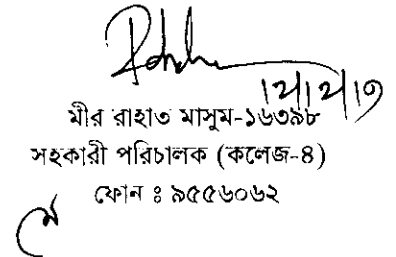 মীর রাহাত মাসুম-১৬৩৯৮
সহকারী পরিচালক (কলেজ-৪)
ফোন ঃ ৯৫৫৬০৬২